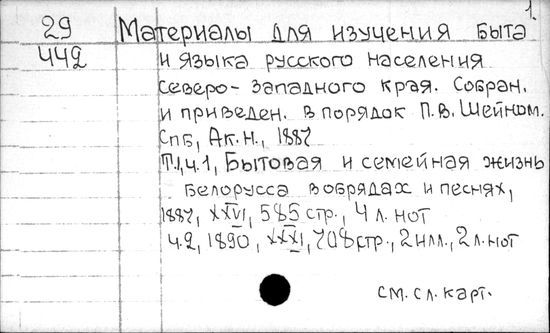 1.
29 Материалы для изучения быта
442 и языка русского населения
северо-западного края. Собран.
и приведен. в порядок П.В. Шейном.
Спб, Ак.Н., 1887
Т.1, ч.1, Бытовая и семейная жизнь
Белорусса в обрядах и песнях,
1887, XXVI, 585 стр., 4 л. нот
ч.2, 1890, XXXI, 708 стр., 2 нлл., 2 л. нот
см. сл. карт.